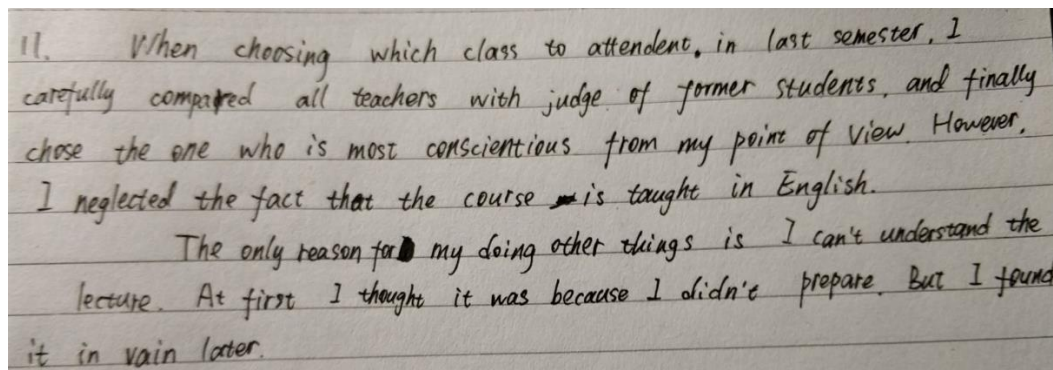 11. When choosing which class to attendent, in last semester, I
carefully compared all teachers with judge of former students, and finally
chose the one who is most conscientious from my point of view. However,
I neglected the fact that the course is taught in English.
The only reason for my doing other things is I can't understand the
lecture. At first I thought it was because I didn't prepare. But I found
it in vain later.